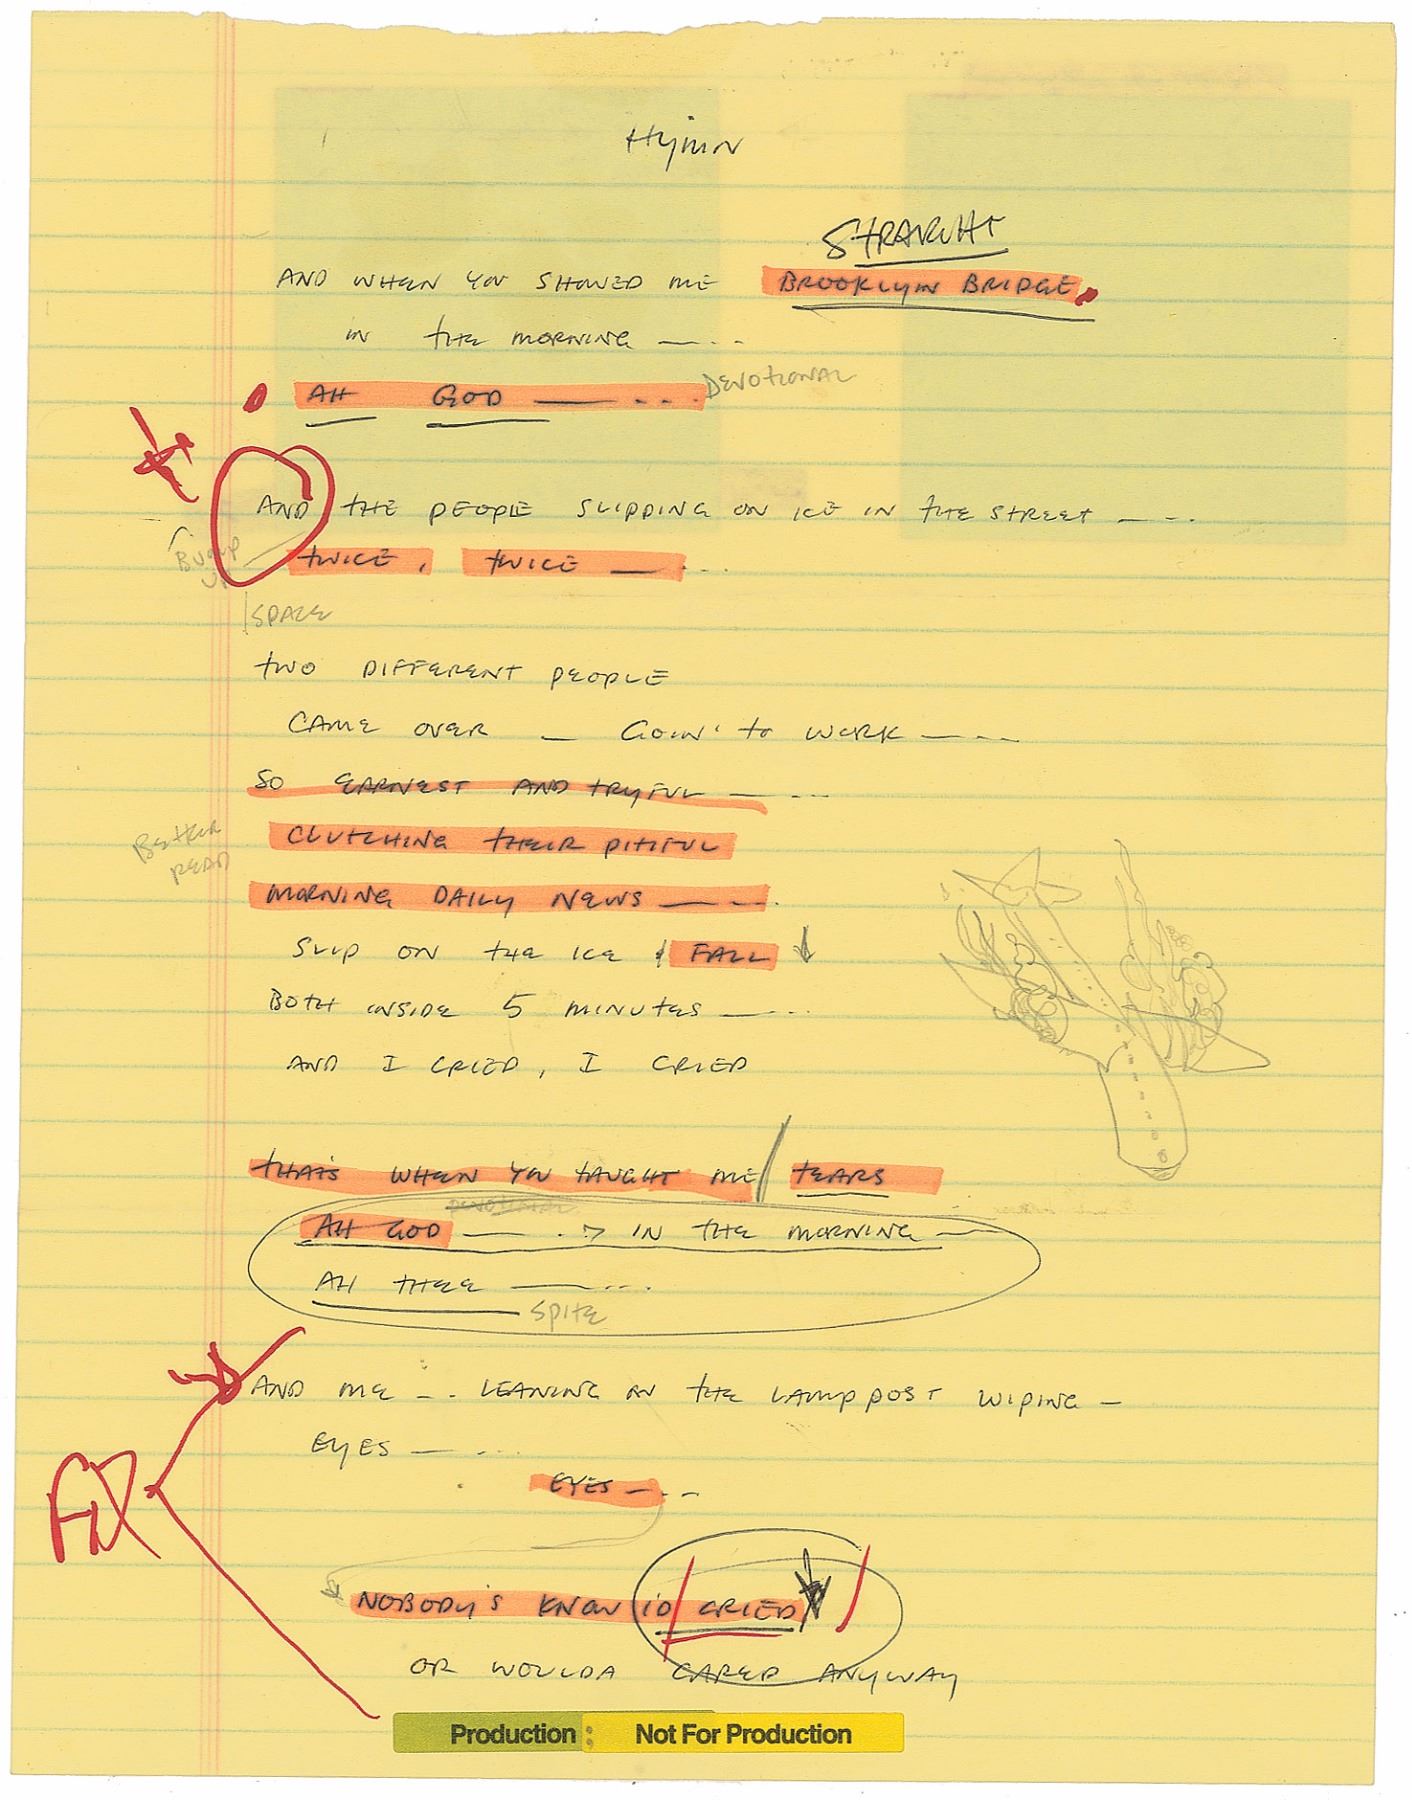 Hymn
STRAIGHT
AND WHEN YOU SHOWED ME BROOKLYN BRIDGE.
IN THE MORNING — - - -
AH GOD — - - - DEVOTIONAL
AND THE PEOPLE SLIPPING ON ICE IN THE STREET — - - -
TWICE, TWICE — - - -
SPACE
TWO DIFFERENT PEOPLE
CAME OVER — GOIN' to WORK — - - -
SO EARNEST AND TRYFUL — - - -
CLUTCHING THEIR PITIFUL
BETTER
READ
MORNING DAILY NEWS — - - -
SLIP ON THE ICE & FALL
BOTH INSIDE 5 MINUTES — - - -
AND I CRIED, I CRIED
THAT'S WHEN YOU TAUGHT ME / TEARS
DEVOTIONAL
AH GOD — - - IN THE MORNING —
AH THEE — - - -
SPITE
AND ME - - - LEANING ON THE LAMPPOST WIPING —
EYES — - - -
EYES — - - -
NOBODY'S KNOW I'D / CRIED /
OR WOULDA CARED ANYWAY
Production : Not For Production